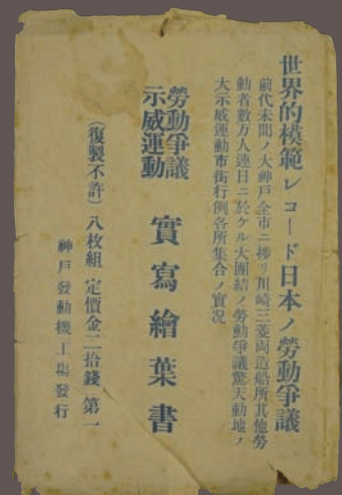 世界的模範レコード日本ノ勞動爭議
前代未聞ノ大神戸全市ニ捗リ川崎三菱両造船所其他勞
動者數万人連日ニ於ケル大團結ノ勞動爭議驚天動地ノ
大示威運動市街行例各所集合ノ實况
勞動爭議
示威運動
實寫繪葉書
(復製不許)八枚組 定價金二拾錢 第一
神戸發動機工塲發行